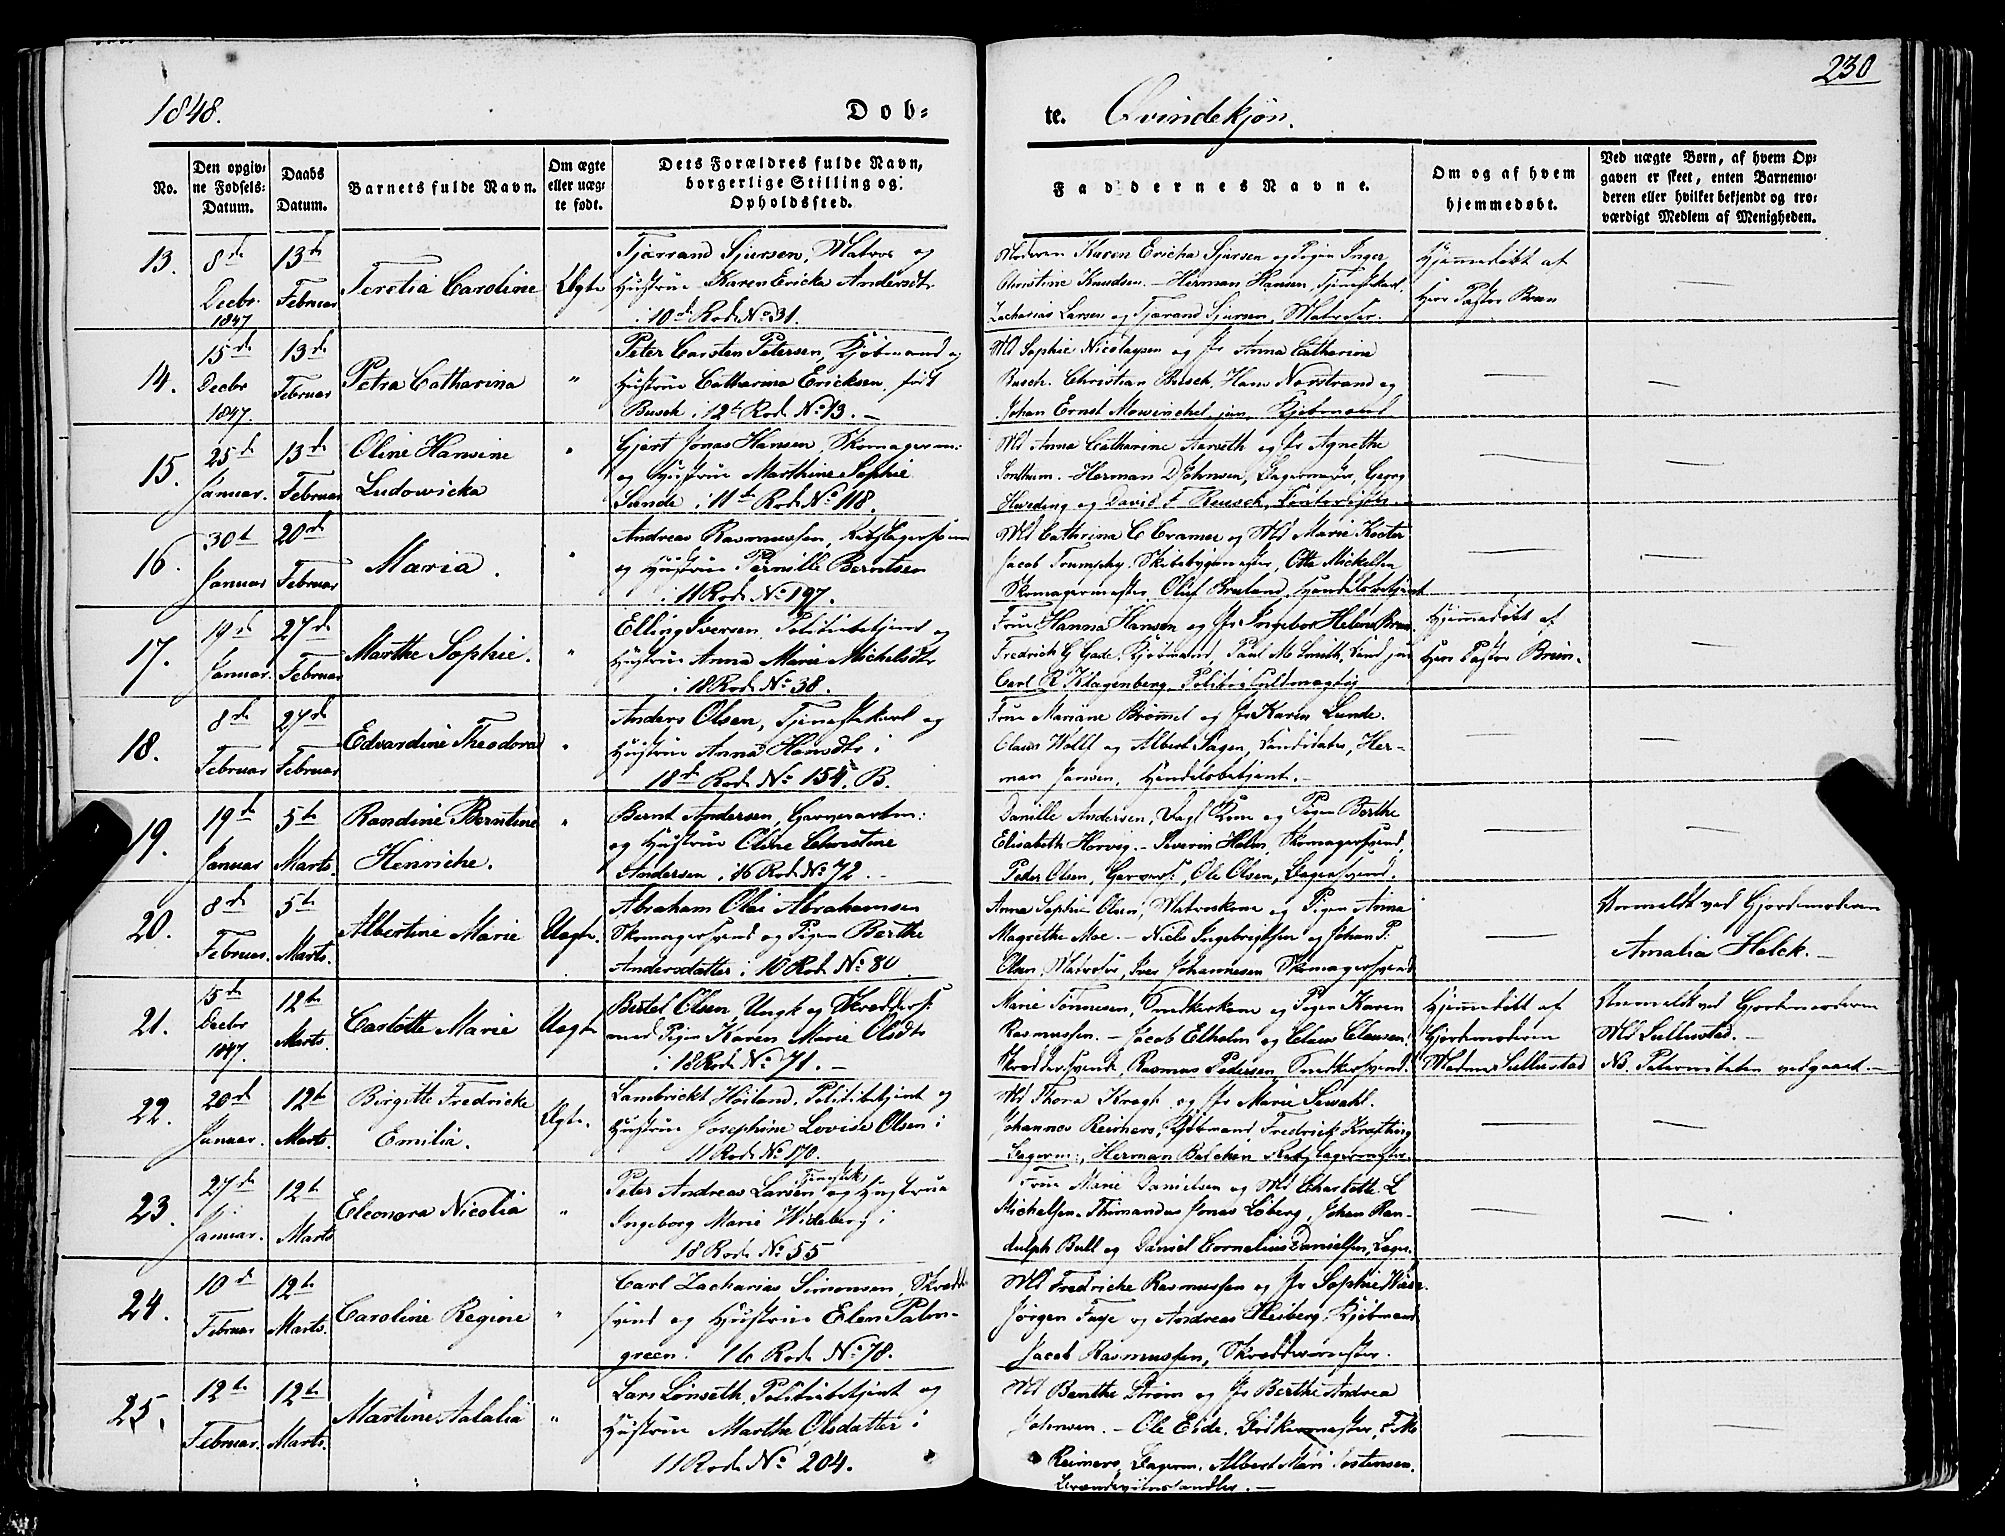 230
1848.
Dob-
te. Qvindekjøn.
No.
Den opgiv-
ne Fødsels-
Datum.
Daabs
Datum.
Barnets fulde Navn.
Om ægte
eller uæg-
te født.
Dets Forældres fulde Navn,
borgerlige Stilling og
Opholdssted.
Faddernes Navne.
Om og af hvem
hjemmedøbt.
Ved uægte Børn, af hvem Op-
gaven er skeet, enten Barnemo-
deren eller hvilket bekjendt og tro-
værdigt Medlem af Menigheden.
13.
8de
Decbr
1847
13de
Februar
Teretia Caroline
Ægte
Tjærand Sjursen, Matros og
Hustrue Karen Ericka Andersdtr
i 10de Rode No 31.
Moderen Karen Ericha Sjursen og Pigen Inger
Christine Knudsen. - Herman Hansen, Tjenestekarl
Zacharias Larsen og Tjærand Sjursen, Matroser.
Hjemmedøbt af
Herr Pastor Brun
14.
15de
Decbr
1847.
13de
Februar
Petra Catharina
"
Peter Carsten Petersen, Kjøbmand og
Hustrue Catharina Ericksen, født
Busch i 12te Rode No 13. -
Md Sophie Nicolaysen og Jfr Anna Catharine
Busch. Christian Busch, Hans Norstrand og
Johan Ernst Mowinchel jun, Kjøbmænd
15.
25de
Januar.
13de
Februar
Oline Hansine
Ludowicka
"
Gjert Jonas Hansen, Skomagersv:
og Hustrue Marthine Sophie
Sunde i 11te Rode No 118.
Md Anna Catharine Aarseth og Jfr Agnethe
Sontum. - Herman D Johnsen, Bagermester, Georg
Hweding og David F Reusch,
16.
30te
Januar
20de
Februar
Maria.
"
Andreas Rasmussen, Rebslagersvend
og Hustrue Pernille Berntsen
i 11 Rode No 197.
Md Cathrina C Cramer og Md Marie Koster
Jacob Trumpy, Skibsbygmester, Otte Mickelsen
Skomagermester, Oluf Breland, Handelsbetjent
17.
19de
Januar.
27de
Februar
Marthe Sophie.
"
Elling Iversen, Politiebetjent og
Hustrue Anna Marie Michelsdtr
i 18 Rode No 38.
Frue Hanna Hansen og Jfr Ingebor Helene Brun
Fredrich G Gade, Kjøbmand, Paul M Smith, Cand jur
Carl R Klagenberg, Politiefuldmægtig
Hjemmedøbt af
Herr Pastor Brun.
18.
8de
Februar
27de
Februar
Edvardine Theodora
"
Anders Olsen, Tjenestekarl og
Hustrue Anna Hansdtr i
18de Rode No 154. B.
Frue Mariane Brømel og Jfr Karen Lunde.
Claus Woltt og Albert Sagen, Candidater, Her-
man Jansen, Handelsbetjent. -
19.
19de
Januar
5te
Marts.
Randine Berntine
Henriche.
"
Bernt Andersen, Garverarbm:
og Hustrue Oline Christine
Andersen i 16 Rode No 72. -
Danille Andersen, Dagl Kone og Pigen Berthe
Elisabeth Horvig. - Severin Holm, Skomagersvend,
Peder Olsen, Garvers:, Ole Olsen, Bagersvend.
20.
8de
Februar.
5te
Marts.
Albertine Marie
Uægte.
Abraham Olai Abrahamsen
Skomagersvend og Pigen Berthe
Andersdatter i 10 Rode No 80
Anna Sophie Olsen, Matroskone og Pigen Anna
Magrethe Moe. - Niels Ingebrigtsen og Johan P:
Olsen, Matroser, Iver Johannesen Skomagersvend
Anmeldt ved Gjordemoderen
Amalia Holck. -
21.
15de
Decbr
1847.
12te
Marts.
Carlotte Marie
Uægte
Bertel Olsen, Ungk og Skrædders:
med Pigen Karen Marie Olsdtr
i 18 Rode No 71. -
Marie Tønnesen, Snedkerkone og Pigen Karen
Rasmussen. - Jacob Elholm og Claus Clausen
Skræddersvende, Rasmus Pedersen Snedkersvend.
Hjemmedøbt af
Gjordemoderen
Madme Sullustad
Anmeldt ved Gjordemoderen
Md Sullustad. -
NB. Paterniteten vedgaaet. -
22.
20de
Januar.
12te
Marts.
Birgitte Fredricke
Emilia.
Ægte.
Lambrickt Høiland. Politibetjent og
Hustrue Josephine Lovise Olsen i
11 Rode No 170.
Md Thora Kragh og Jfr Marie Sewahl.
Johannes Reimers, Kjøbmand, Fredrick Krafting
Bagerm:, Herman Balchen Rebslagermester
23.
27de
Januar.
12te
Marts
Eleonora Nicolia
"
Peter Andreas Larsen Tjenestek. og Hustrue
Ingeborg Marie Wideberg i
18 Rode No 55
Frue Marie Danielsen og Md Charlotte L
Michelsen. Thimandus Jonas Løberg, Johan Ran-
dulph Bull og Daniel Cornelius Danielsen, Læger.
24.
10de
Februar
12te
Marts.
Caroline Regine
"
Carl Zacharias Simonsen, Skrædder
svend og Hustrue Elen Palm-
green. 16 Rode No 78.
Md Fredricke Rasmussen og Jfr Sophie
Jørgen Faye og Andreas Heiberg, Kjøbmænd
Jacob Rasmussen, Skræddermester.
25.
12te
Februar.
12te
Marts.
Martine Aalalia
"
Lars Lønseth, Politiebetjent og
Hustrue Marthe Olsdatter i
11 Rode No 204.
Md Benthe Strøm og Jfr Berthe Andrea
Johnsen. - Ole Eide, Bødkermester, F M
Reimers, Bagerm. Albert Mari Torstensen.